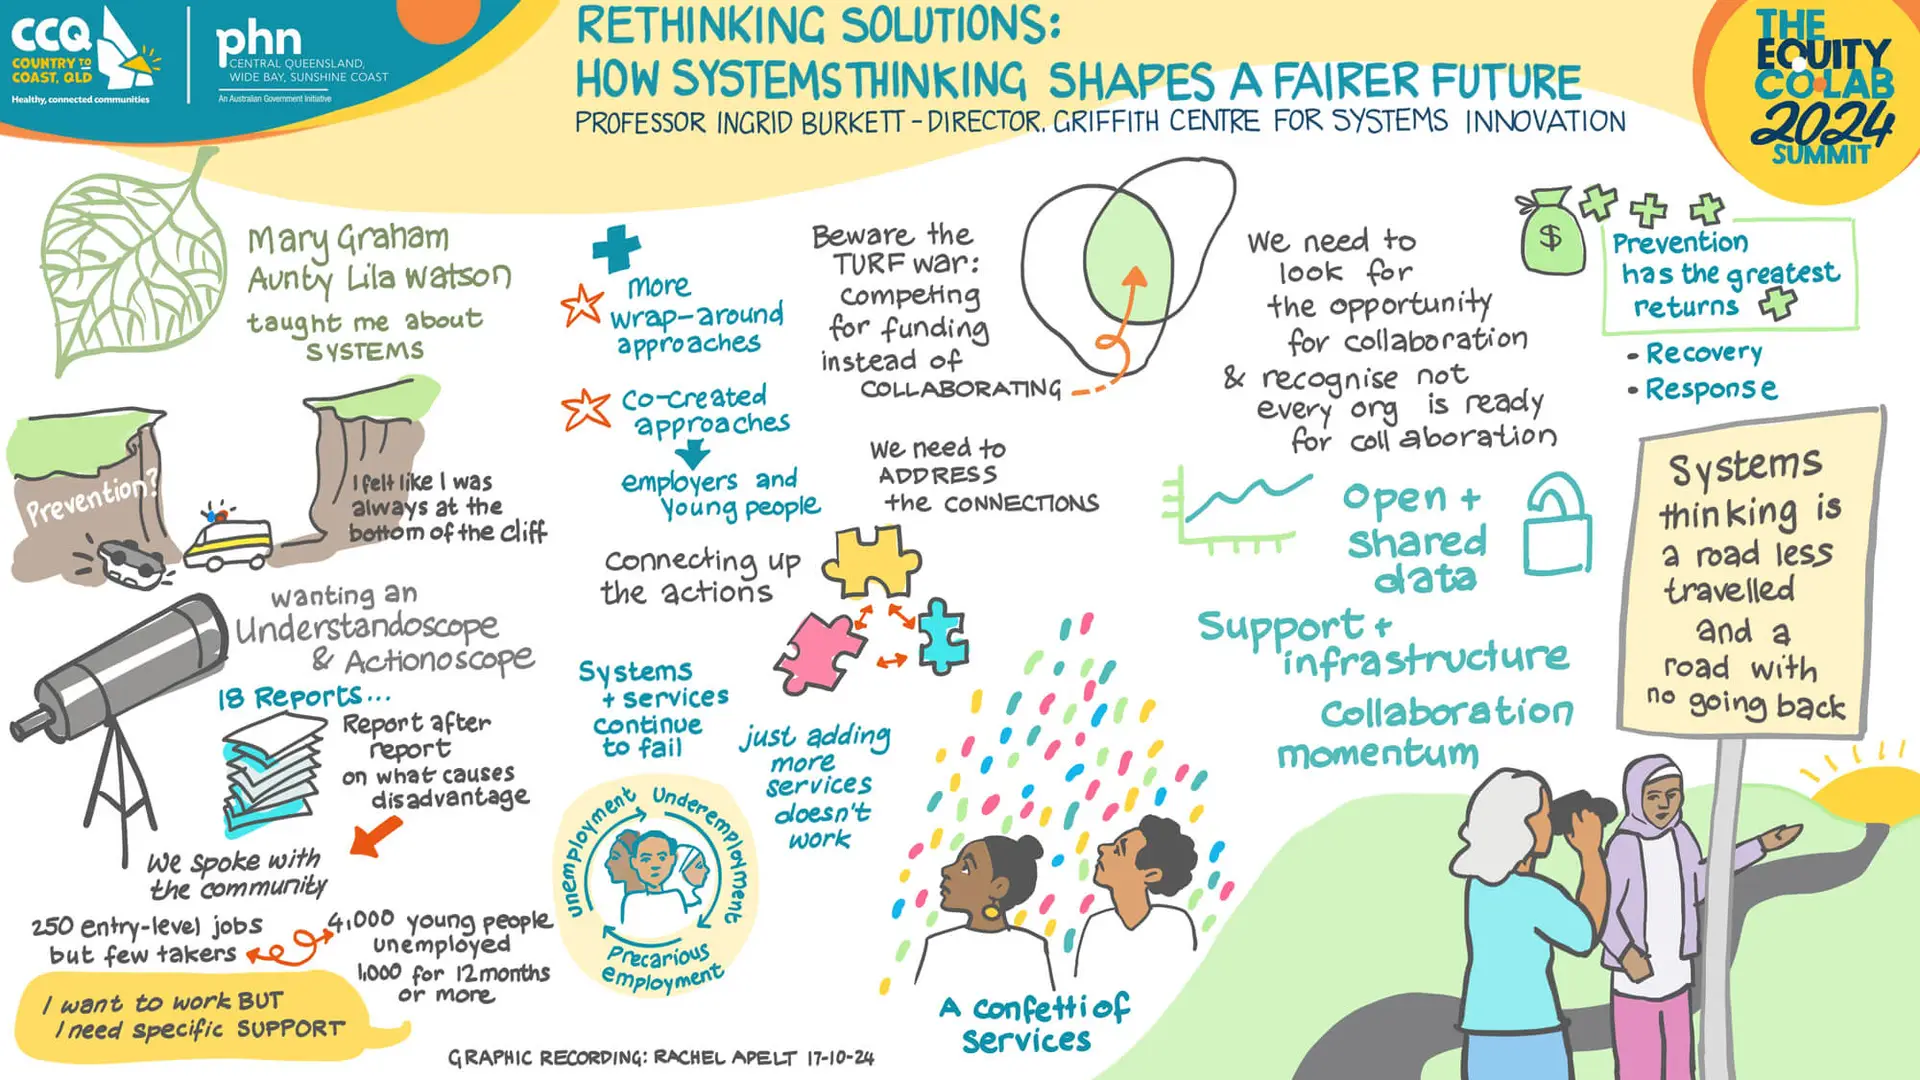 CCQ
COUNTRY TO
COAST, QLD
Healthy, connected communities
phn
CENTRAL QUEENSLAND,
WIDE BAY, SUNSHINE COAST
An Australian Government Initiative
RETHINKING SOLUTIONS:
HOW SYSTEMS THINKING SHAPES A FAIRER FUTURE
PROFESSOR INGRID BURKETT - DIRECTOR, GRIFFITH CENTRE FOR SYSTEMS INNOVATION
THE
EQUITY
COLAB
2024
SUMMIT
Mary Graham
Aunty Lila Watson
taught me about
SYSTEMS
Prevention?
I felt like I was
always at the
bottom of the cliff
wanting an
Understandoscope
& Actionoscope
18 Reports...
Report after
report
on what causes
disadvantage
We spoke with
the community
250 entry-level jobs
but few takers
4,000 young people
unemployed
1,000 for 12 months
or more
I want to work BUT
I need specific SUPPORT
More
wrap-around
approaches
Co-created
approaches
employers and
Young people
Connecting up
the actions
Systems
+ services
continue
to fail
Unemployment
Underemployment
Precarious
employment
just adding
more
services
doesn't
work
Beware the
TURF war:
competing
for funding
instead of
COLLABORATING
We need to
ADDRESS
the CONNECTIONS
A confetti of
services
We need to
look for
the opportunity
for collaboration
& recognise not
every org is ready
for collaboration
Open +
shared
data
Support +
infrastructure
Collaboration
momentum
$
Prevention
has the greatest
returns
• Recovery
• Response
Systems
thinking is
a road less
travelled
and a
road with
no going back
GRAPHIC RECORDING: RACHEL APELT 17-10-24